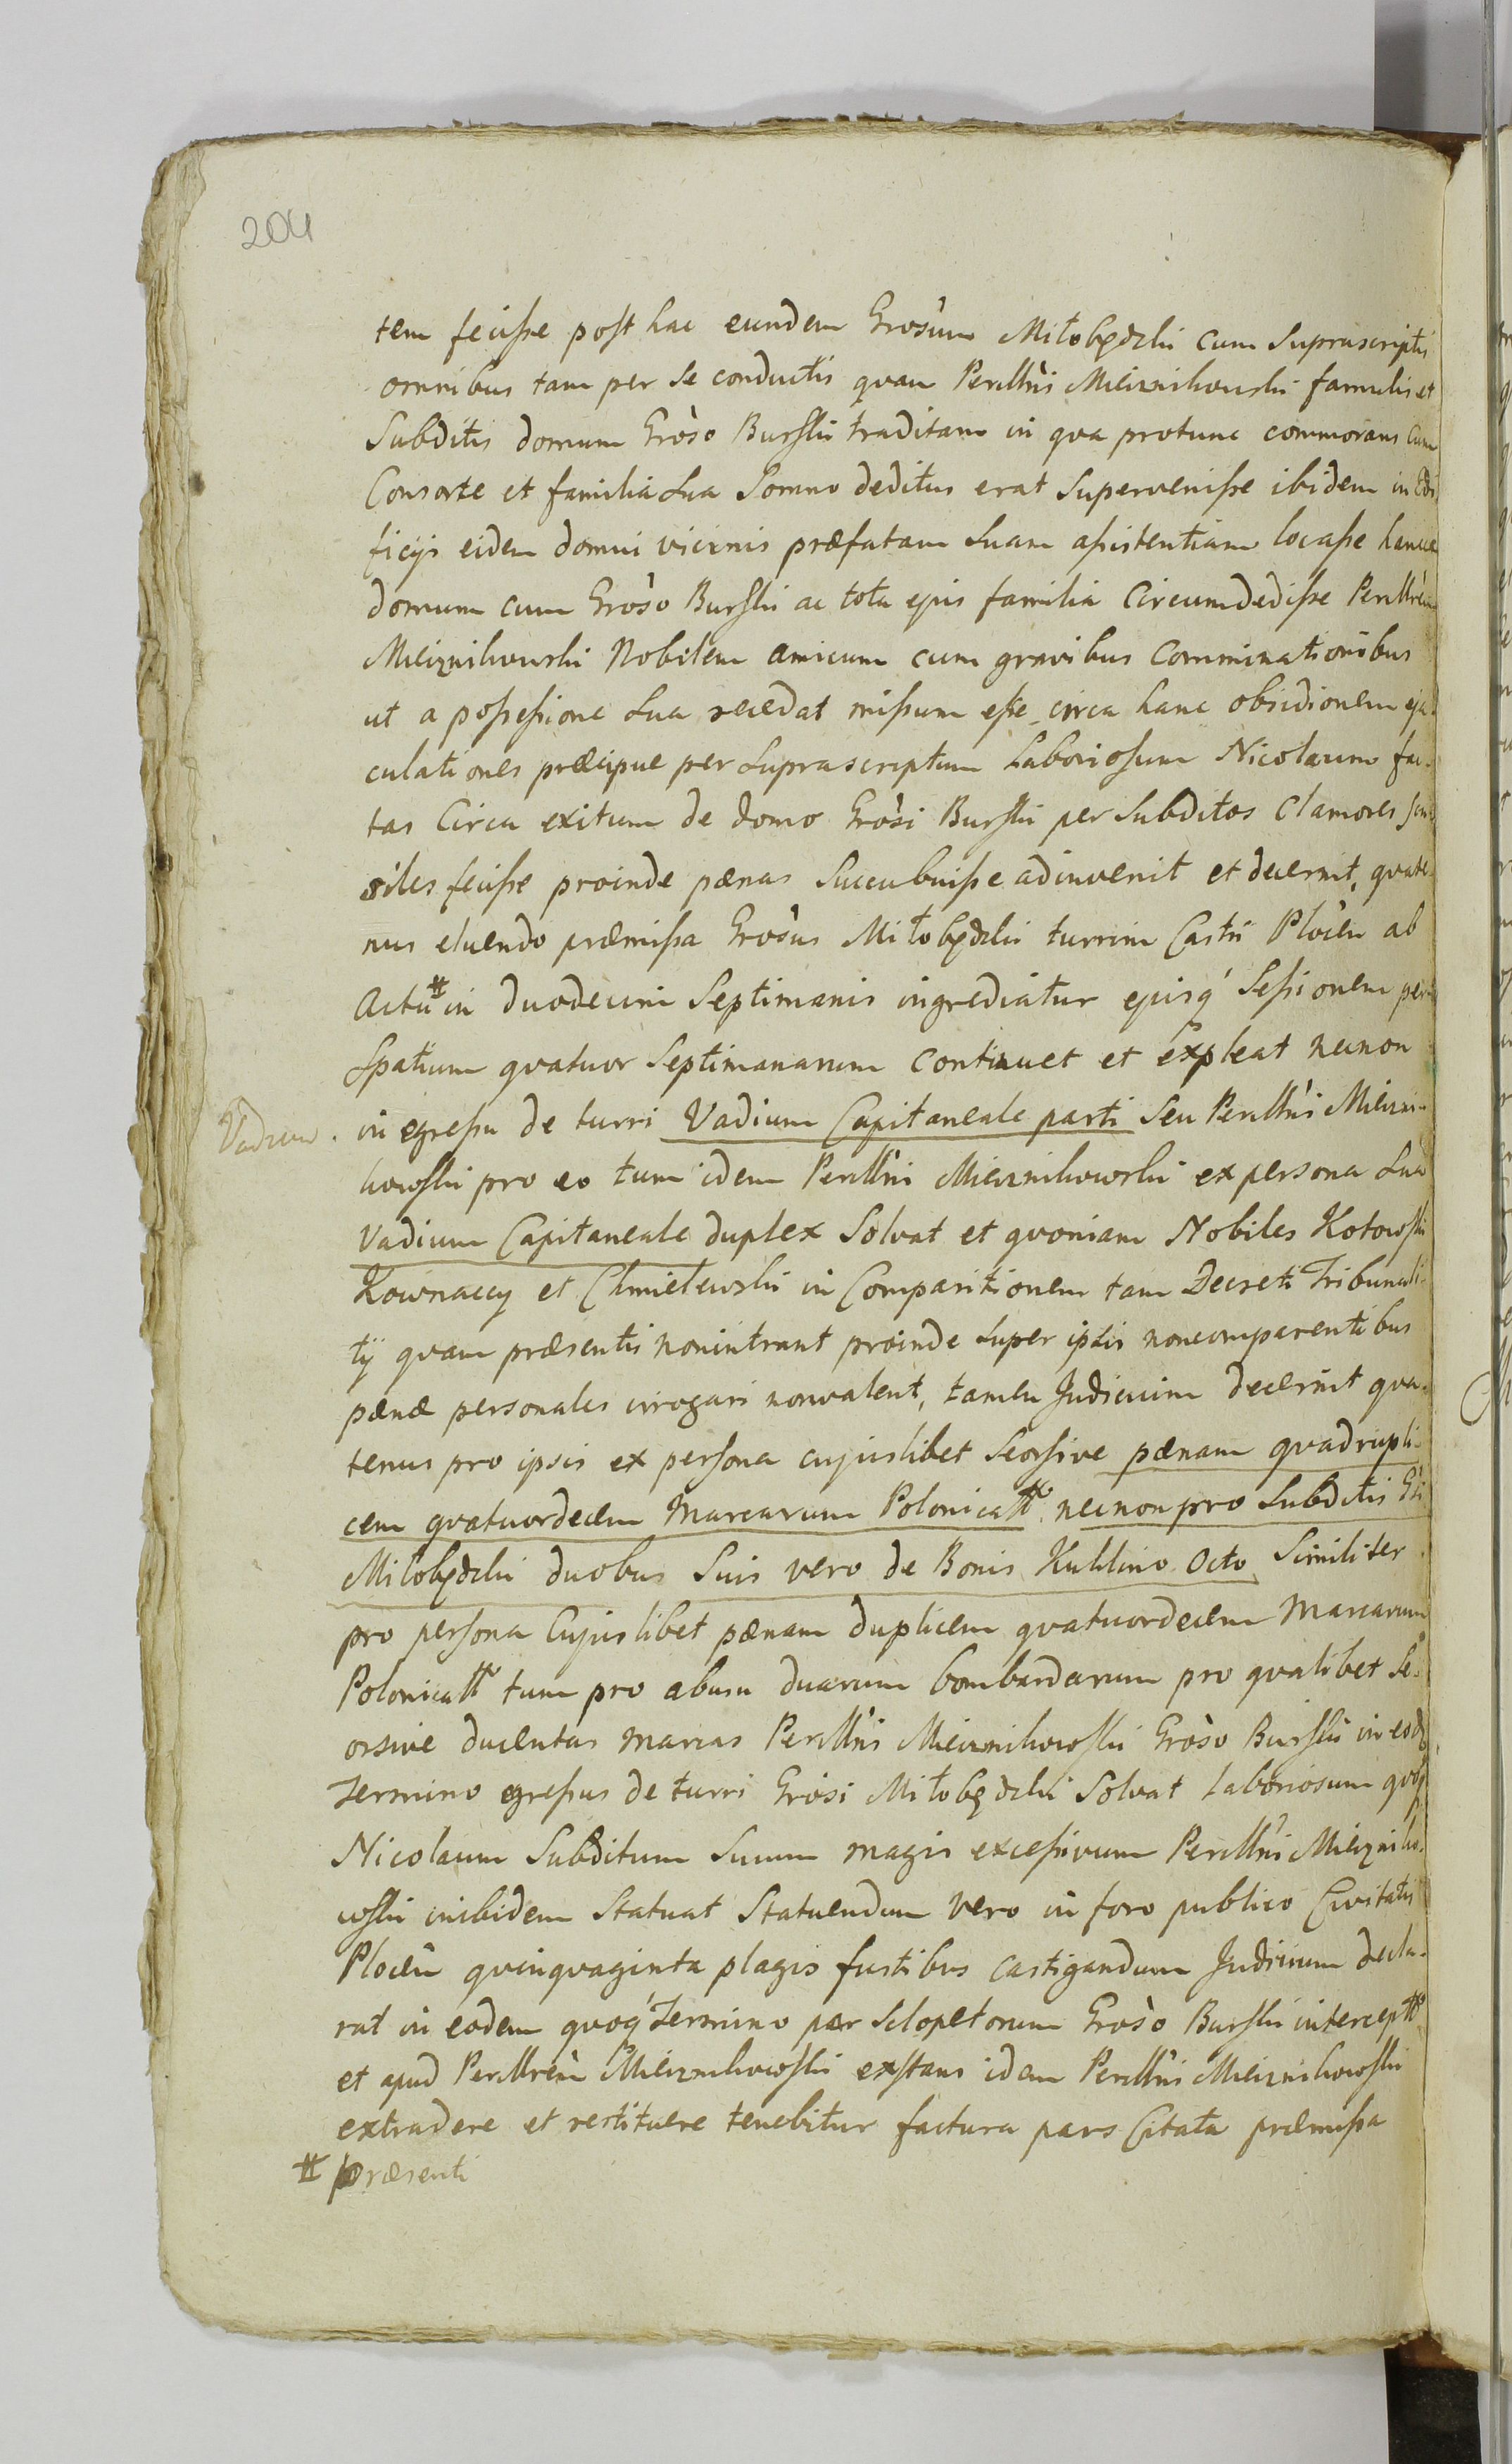 204
tem fecisse post hac eundem Grosum Miłobędzki cum Suprascriptis
omnibus tam per Se conductis quam Perillris Mierznikowski famulis et
Subditis domum Groso Burski traditam in qua protunc commorans Cum
Consorte et familia Sua Somno deditus erat Supervenisse ibidem in Edi
ficijs eidem domui vicinis præfatam Suam assistentiam locasse hancce
domum cum Groso Burski ac tota ejus familia Circumdedisse Perillrem
Mierznikowski Nobilem amicum cum gravibus Comminationibus
ut a possessione Sua recedat missum esse circa hanc obsidionem eja-
culationes præcipue per Suprascriptum Laboriosum Nicolaum fac-
tas Circa exitum de domo Grosi Burski per Subditos Clamores
siles fecisse proinde pænas Succubuisse adinvenit et decernit, quate-
nus eluendo præmissa Grosus Miłobędzki turrim Castri Plocen ab
Actu # in duodecim Septimanis ingrediatur ejusq Sessionem per
Spatium quatuor Septimanarum Continuet et expleat necnon
Vadium. in egressu de turri Vadium Capitaneale parti Seu Perillris Mierzni-
kowski pro eo tum idem Perillris Mierznikowski ex persona Sua
Vadium Capitaneale duplex Solvat et quoniam Nobiles Kotowski
Kownaccy et Chmielewski in Comparitionem tam Decreti Tribunali-
tij quam præsentis nonintrant proinde Super ipsis noncomparentibus
pænæ personales irrogari nonvalent, tamen Judicium decernit qua-
tenus pro ipsis ex persona cujuslibet Seorsive pænam quadrupli-
cem quatuordecem Marcarum Polonica# necnon pro Subditis Gsi
Milobędzki duobus Suis vero de Bonis Kuklino Octo Similiter
pro persona Cujuslibet pænam duplicem quatuordecem Marcarum
Polonica# tum pro abusu duarum bombardarum pro qualibet Se-
orsive ducentas marcas Perillris Mierznikowski Groso Burski in eod
Termino egressus de turri Grosi Miłobędzki Solvat Laboriosum quoq
Nicolaum Subditum Suum magis excessivum Perillris Mierzniko-
wski inibidem Statuat Statuendum vero in foro publico Civitatis
Plocen quinquaginta plagis fustibus castigandum Judicium decla-
rat in eodem quoq Termino par Sclopetorum Groso Burski intercept#
et apud Perillrem Mierznikowski exstans idem Perillris Mierznikowski
extradere et restituere tenebitur factura pars Citata præmissa
# præsenti